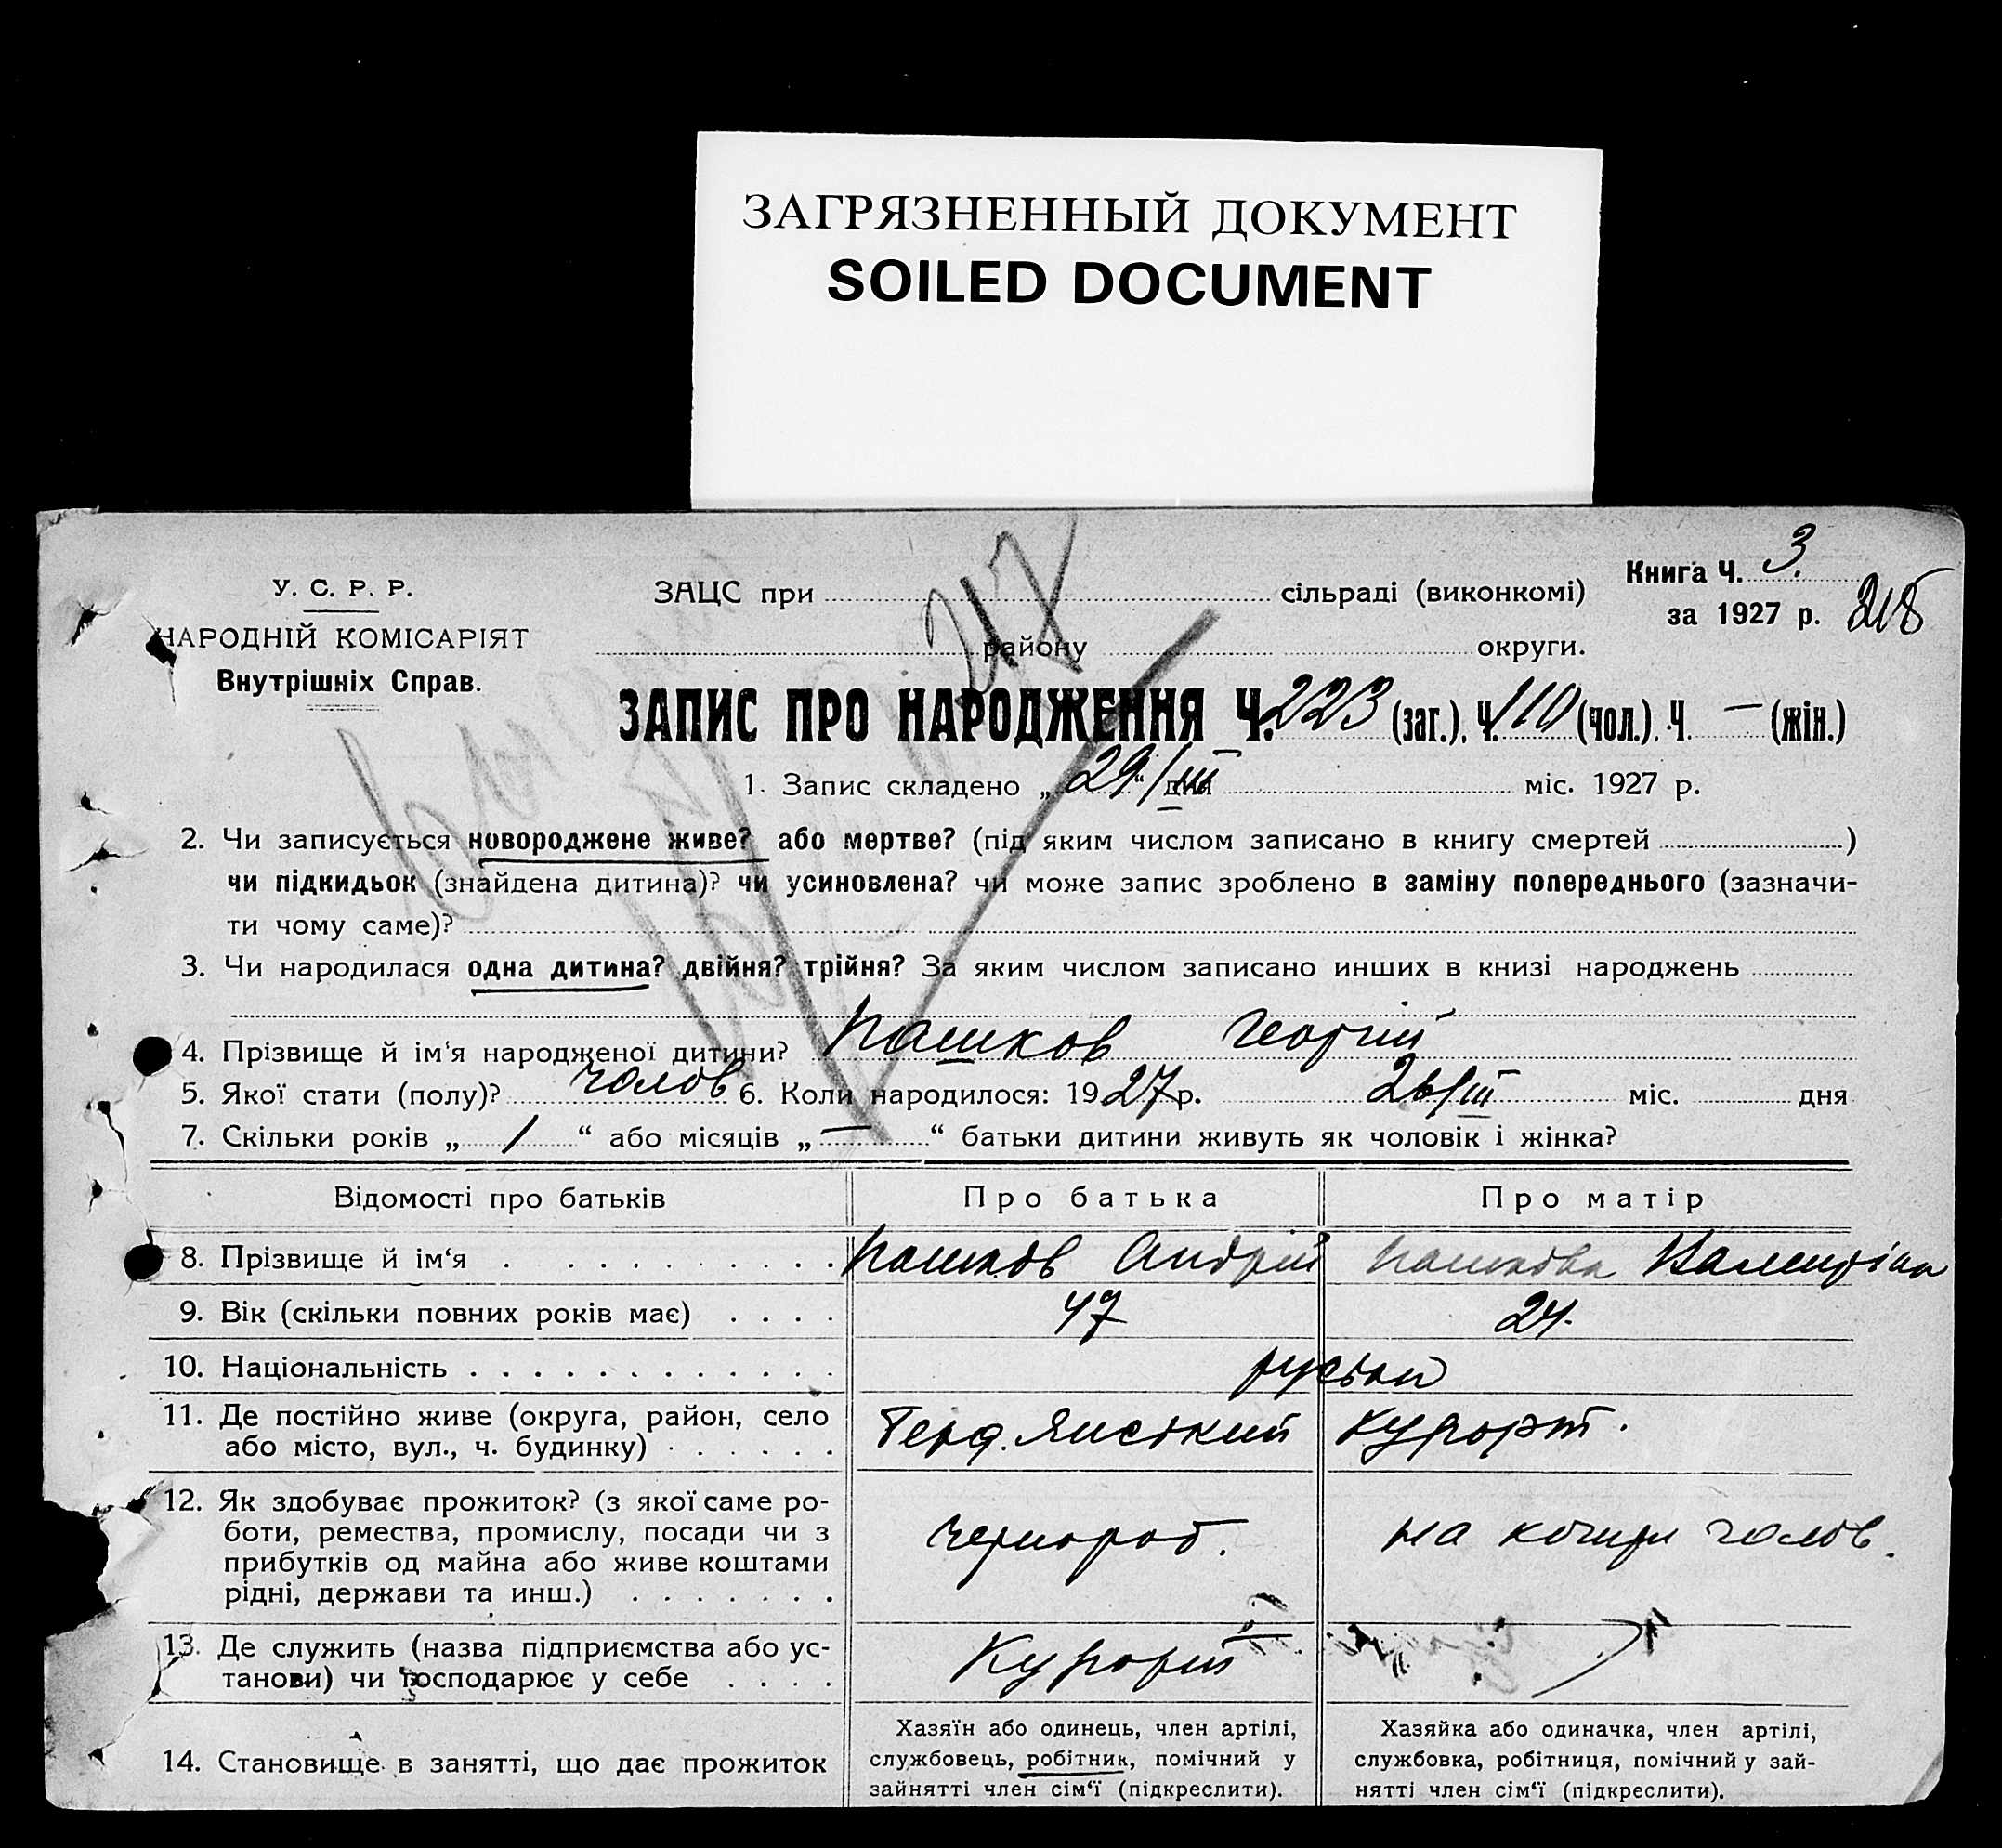 ЗАГРЯЗНЕННЫЙ ДОКУМЕНТ
SOILED DOCUMENT
Книга Ч. 3.
за 1927 р. 218
У. С. Р. Р.
НАРОДНІЙ КОМІСАРІЯТ
Внутрішніх Справ.
ЗАЦС при сільраді (виконкомі)
району округи.
ЗАПИС ПРО НАРОДЖЕННЯ Ч. 223 (заг.). Ч. 110 (чол.). Ч. — (жін.)
1. Запис складено „ 29 “/III дня міс. 1927 р.
2. Чи записується новороджене живе? або мертве? (під яким числом записано в книгу смертей )
чи підкидьок (знайдена дитина)? чи усиновлена? чи може запис зроблено в заміну попереднього (зазначи-
ти чому саме)?
3. Чи народилася одна дитина? двійня? трійня? За яким числом записано инших в книзі народжень
4. Прізвище й ім‘я народженої дитини? Пашков Георгій
5. Якої стати (полу)? чолов 6. Коли народилося: 1927 р. 26/III міс. дня
7. Скільки років „ 1 “ або місяців „ — “ батьки дитини живуть як чоловік і жінка?
Відомості про батьків Про батька Про матір
8. Прізвище й ім‘я Пашков Андрій Пашкова Валентіна
9. Вік (скільки повних років має) 47 24.
10. Національність руські
11. Де постійно живе (округа, район, село
або місто, вул., ч. будинку) курорт.
12. Як здобуває прожиток? (з якої саме ро-
боти, ремества, промислу, посади чи з
прибутків од майна або живе коштами
рідні, держави та инш.) чернороб. на кошти чолов.
13. Де служить (назва підприємства або ус-
танови) чи господарює у себе Курорт
14. Становище в занятті, що дає прожиток
Хазяїн або одинець, член артілі,
службовець, робітник, помічний у
зайнятті член сім‘ї (підкреслити).
Хазяйка або одиначка, член артілі,
службовка, робітниця, помічний у зай-
нятті член сім‘ї (підкреслити).